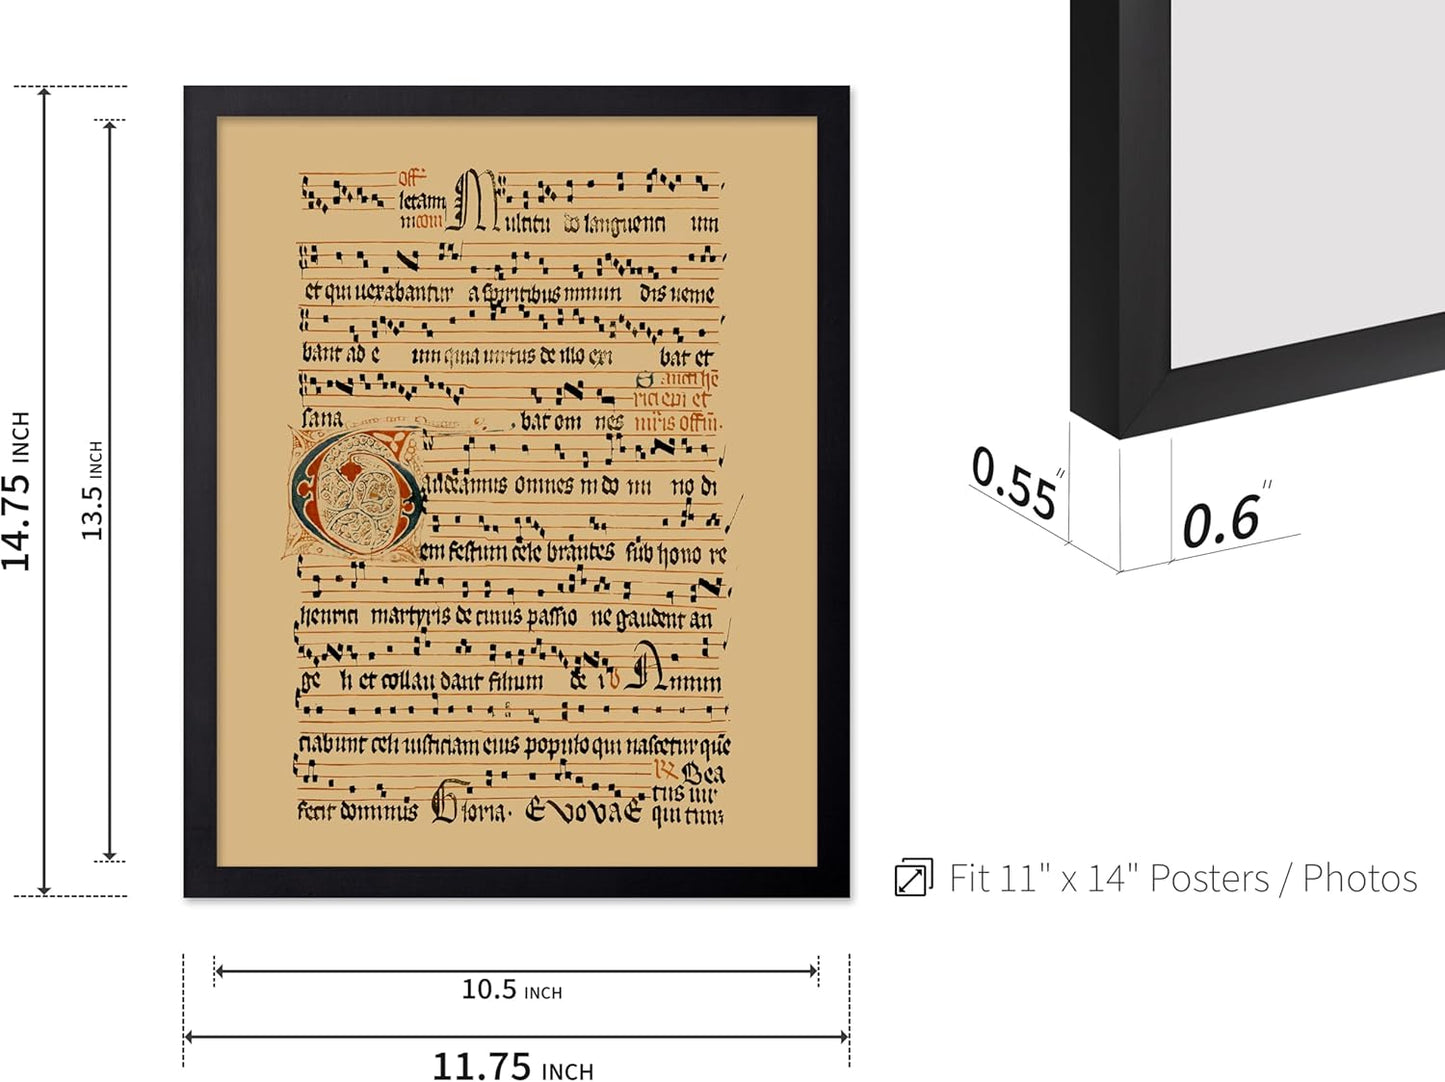 14.75 INCH
13.5 INCH
off
letam
m com
Multitu do languenti um
et qui uexabantur a spiritibus inmun dis ueme
bant ad e um quia uirtus de illo exi bat et
sana bat om nes
rici epi et
Gaudeamus omnes in do mi no di
em festum cele brantes sub hono re
henrici martyris de cuius passio ne gaudent an
ge li et collau dant filium de i Annun
ciabunt celi iusticiam eius populo qui nascetur que
Bea
fecit dominus Gloria. EVOVAE
tus uir
qui tim
10.5 INCH
11.75 INCH
0.55"
0.6"
Fit 11" x 14" Posters / Photos